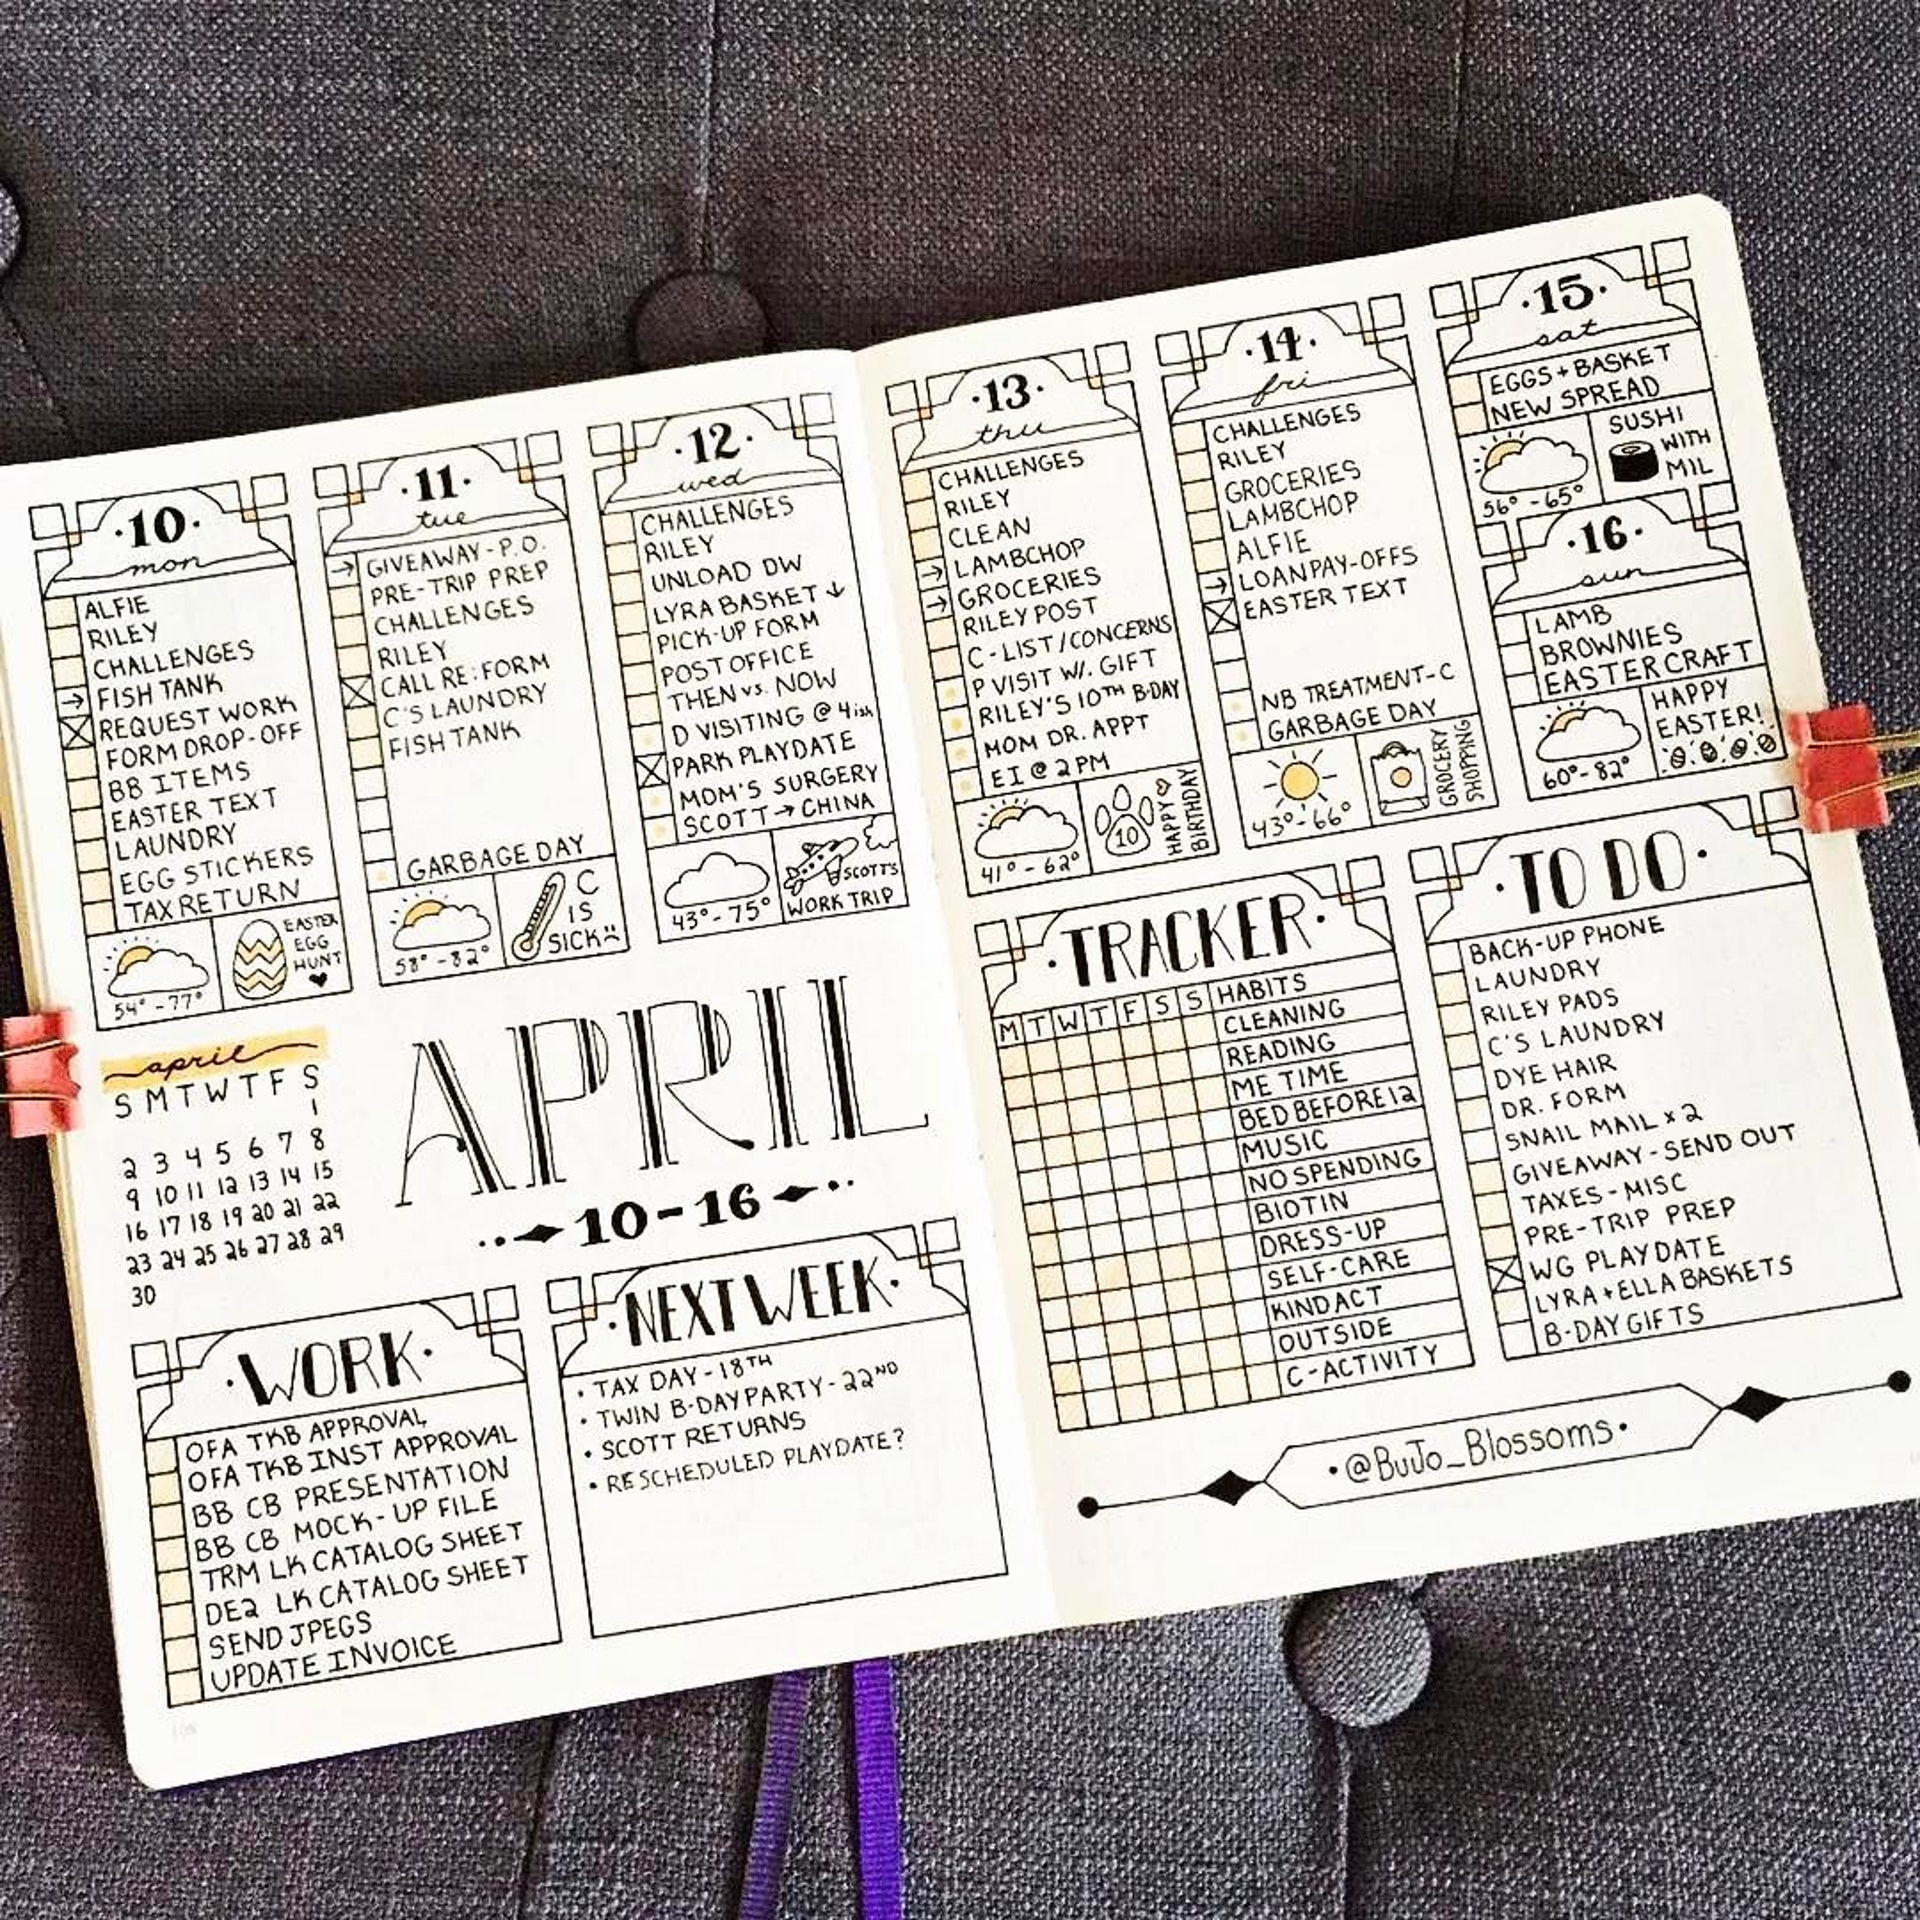 ·10·
mon
ALFIE
RILEY
CHALLENGES
→ FISH TANK
REQUEST WORK
FORM DROP-OFF
BB ITEMS
EASTER TEXT
LAUNDRY
EGG STICKERS
TAX RETURN
54°-77°
EASTER
EGG
HUNT
·11·
tue
→ GIVEAWAY-P.O.
PRE-TRIP PREP
CHALLENGES
RILEY
CALL RE:FORM
C'S LAUNDRY
FISH TANK
GARBAGE DAY
58°-82°
C
IS
SICK
·12·
wed
CHALLENGES
RILEY
UNLOAD DW
LYRA BASKET ↓
PICK-UP FORM
POST OFFICE
THEN vs. NOW
D VISITING @ 4ish
PARK PLAYDATE
MOM'S SURGERY
SCOTT → CHINA
43°-75°
SCOTT'S
WORK TRIP
april
S M T W T F S
1
2 3 4 5 6 7 8
9 10 11 12 13 14 15
16 17 18 19 20 21 22
23 24 25 26 27 28 29
30
APRIL
10-16
·WORK·
OFA TKB APPROVAL
OFA TKB INST APPROVAL
BB CB PRESENTATION
BB CB MOCK-UP FILE
TRM LK CATALOG SHEET
DE2 LK CATALOG SHEET
SEND JPEGS
UPDATE INVOICE
·NEXT WEEK·
• TAX DAY-18TH
• TWIN B-DAY PARTY-22ND
• SCOTT RETURNS
• RESCHEDULED PLAYDATE?
·13·
thu
CHALLENGES
RILEY
CLEAN
→ LAMBCHOP
→ GROCERIES
RILEY POST
C-LIST/CONCERNS
P VISIT W/. GIFT
RILEY'S 10TH B-DAY
MOM DR. APPT
EI @ 2PM
41°-62°
10
HAPPY
BIRTHDAY
·14·
fri
CHALLENGES
RILEY
GROCERIES
LAMBCHOP
ALFIE
→ LOAN PAY-OFFS
EASTER TEXT
NB TREATMENT-C
GARBAGE DAY
43°-66°
GROCERY
SHOPPING
·15·
sat
EGGS + BASKET
NEW SPREAD
56°-65°
SUSHI
WITH
MIL
·16·
sun
LAMB
BROWNIES
EASTER CRAFT
60°-82°
HAPPY
EASTER!
·TRACKER·
M T W T F S S HABITS
CLEANING
READING
ME TIME
BED BEFORE 12
MUSIC
NO SPENDING
BIOTIN
DRESS-UP
SELF-CARE
KIND ACT
OUTSIDE
C-ACTIVITY
·TO DO·
BACK-UP PHONE
LAUNDRY
RILEY PADS
C'S LAUNDRY
DYE HAIR
DR. FORM
SNAIL MAIL x 2
GIVEAWAY-SEND OUT
TAXES-MISC
PRE-TRIP PREP
WG PLAYDATE
LYRA + ELLA BASKETS
B-DAY GIFTS
·@BuJo_Blossoms·